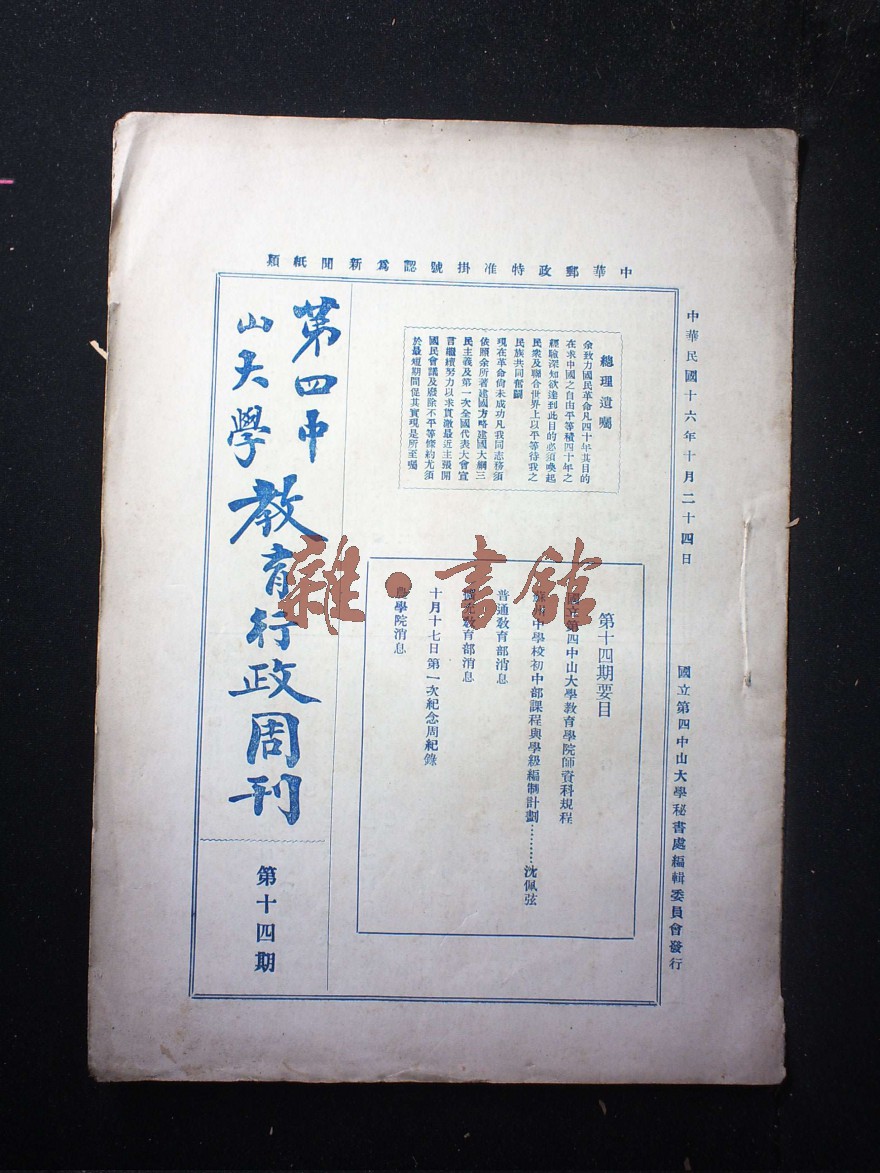 中華郵政特准掛號認爲新聞紙類
中華民國十六年十月二十四日
國立第四中山大學秘書處編輯委員會發行
總理遺囑
余致力國民革命凡四十年其目的
在求中國之自由平等積四十年之
經驗深知欲達到此目的必須喚起
民衆及聯合世界上以平等待我之
民族共同奮鬪
現在革命尙未成功凡我同志務須
依照余所著建國方略建國大綱三
民主義及第一次全國代表大會宣
言繼續努力以求貫澈最近主張開
國民會議及廢除不平等條約尤須
於最短期間促其實現是所至囑
第十四期要目
國立第四中山大學教育學院師資科規程
蘇州中學校初中部課程與學級編制計劃………沈佩弦
普通教育部消息
擴充教育部消息
十月十七日第一次紀念周紀錄
農學院消息
第四中
山大學
教育行政周刊
第十四期
雜·書館